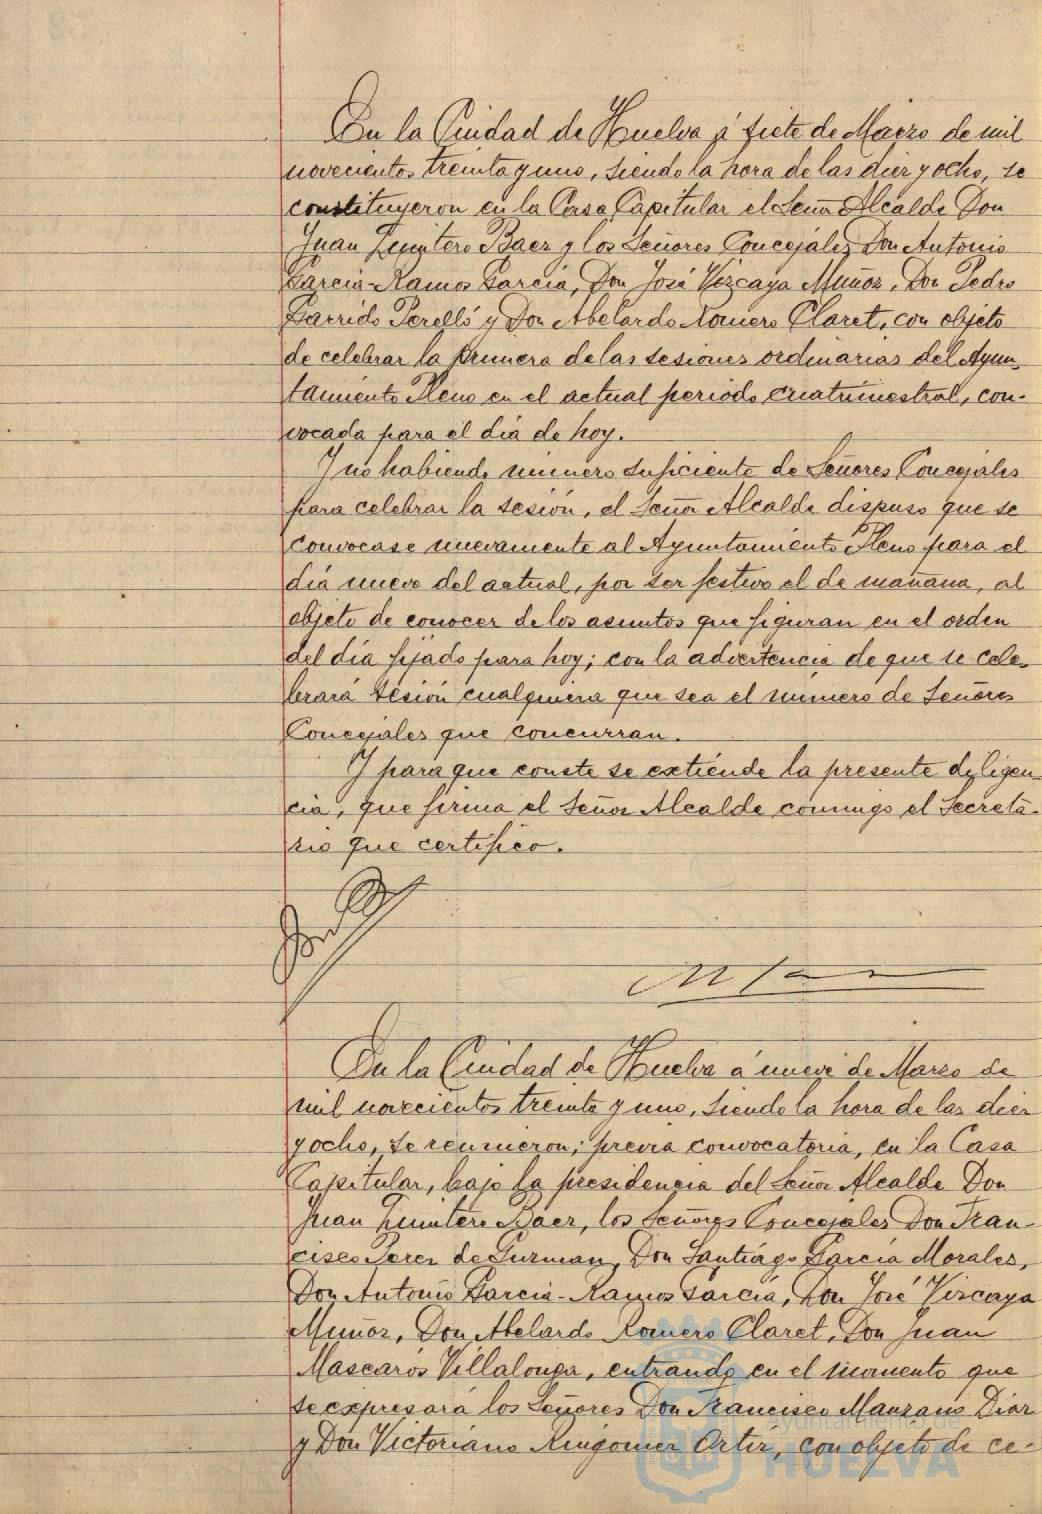 En la Ciudad de Huelva á siete de Marzo de mil
novecientos treinta y uno, siendo la hora de las diez y ocho, se
constituyeron en la Casa Capitular el Señor Alcalde Don
Juan Quintero Baez y los Señores Concejales Don Antonio
Garcia-Ramos Garcia, Don José Vizcaya Muñoz, Don Pedro
Garrido Perelló y Don Abelardo Romero Claret, con objeto
de celebrar la primera de las sesiones ordinarias del Ayun-
tamiento Pleno en el actual periodo cuatrimestral, con-
vocada para el día de hoy.
Y no habiendo número suficiente de Señores Concejales
para celebrar la sesión, el Señor Alcalde dispuso que se
convocase nuevamente al Ayuntamiento Pleno para el
día nueve del actual, por ser festivo el de mañana, al
objeto de conocer de los asuntos que figuran en el orden
del día fijado para hoy; con la advertencia de que se cele-
brará sesión cualquiera que sea el número de Señores
Concejales que concurran.
Y para que conste se extiende la presente diligen-
cia, que firma el Señor Alcalde conmigo el Secreta-
rio que certifico.
En la Ciudad de Huelva á nueve de Marzo de
mil novecientos treinta y uno, siendo la hora de las diez
y ocho, se reunieron, previa convocatoria, en la Casa
Capitular, bajo la presidencia del Señor Alcalde Don
Juan Quintero Baez, los Señores Concejales Don Fran-
cisco Perez de Guzman, Don Santiago García Morales,
Don Antonio Garcia-Ramos García, Don José Vizcaya
Muñoz, Don Abelardo Romero Claret, Don Juan
Mascarós Villalonga, entrando en el momento que
se expresará los Señores Don Francisco Manzano Diaz
y Don Victoriano Ortiz, con objeto de ce-
Ayuntamiento de
HUELVA